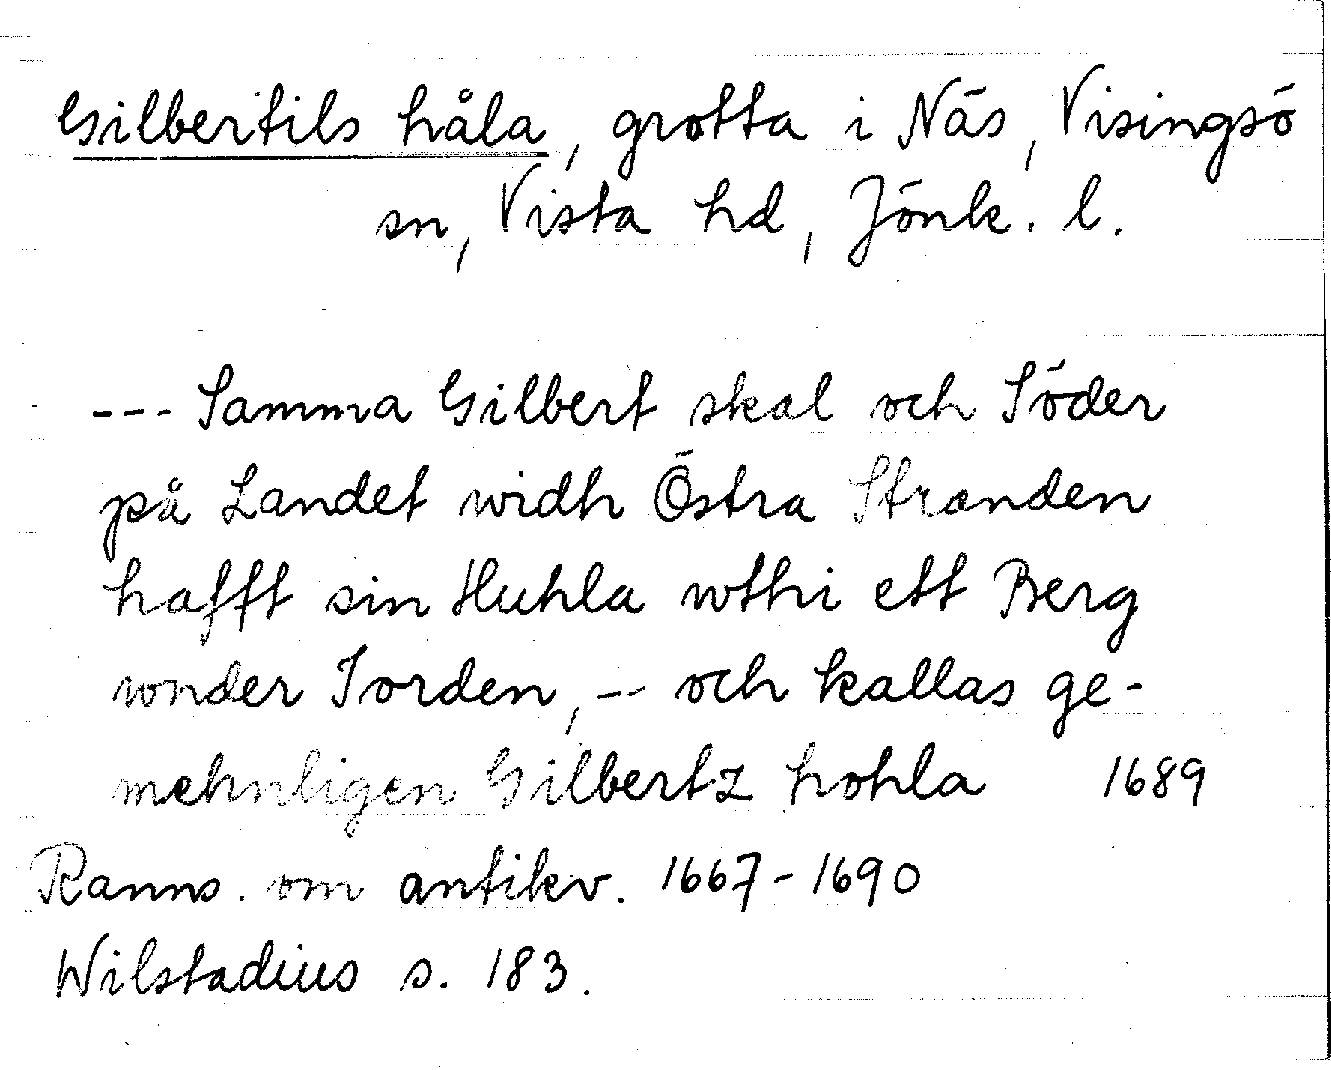 Gilbertils håla, grotta i Näs, Visingsö
sn, Vista hd, Jönk. l.
--- Samma Gilbert skal och Söder
på Landet widh Östra Stranden
hafft sin Huhla wthi ett Berg
wnder Jorden, -- och kallas ge-
mehnligen Gilbertz hohla 1689
Ranns. om antikv. 1667-1690
Wilstadius s. 183.